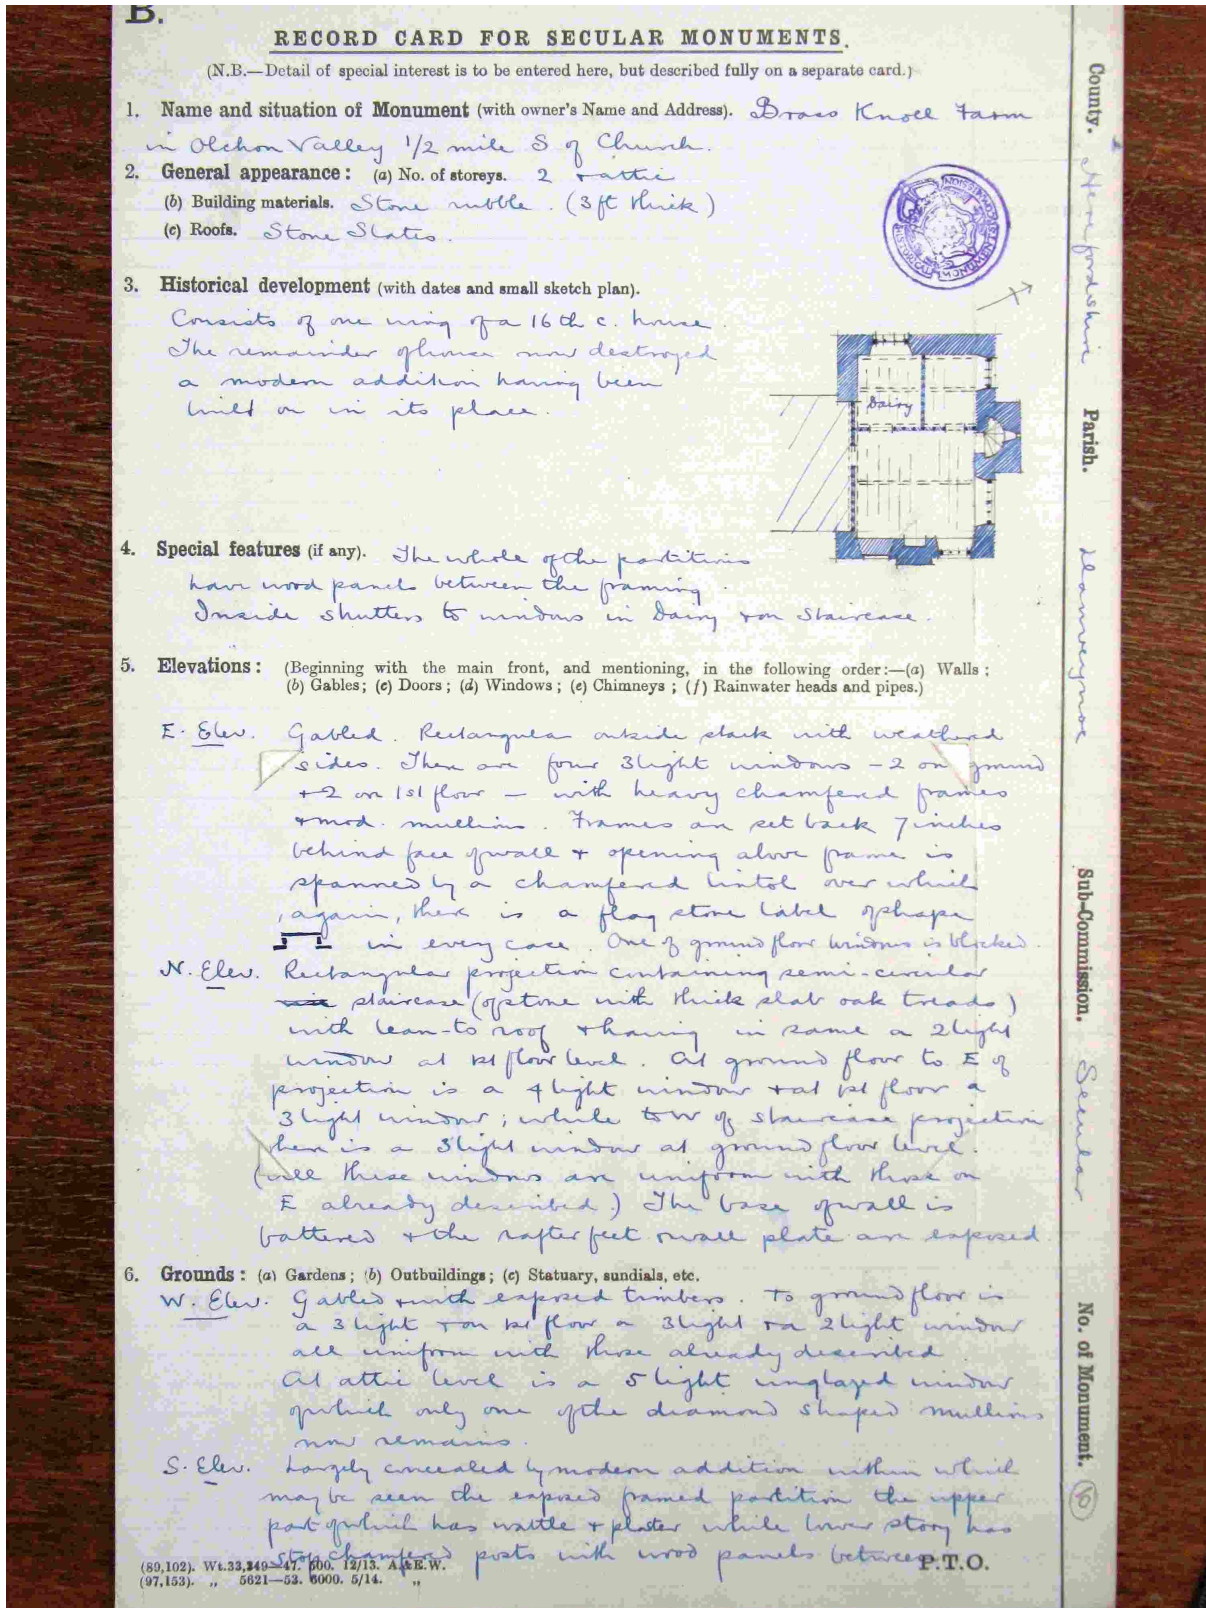 B.
RECORD CARD FOR SECULAR MONUMENTS.
(N.B.—Detail of special interest is to be entered here, but described fully on a separate card.)
1. Name and situation of Monument (with owner's Name and Address). Brass Knoll Farm
in Olchon Valley 1/2 mile S of Church.
2. General appearance: (a) No. of storeys. 2 + attic
(b) Building materials. Stone rubble. (3 ft thick)
(c) Roofs. Stone Slates.
3. Historical development (with dates and small sketch plan).
Consists of one wing of a 16th c. house.
The remainder of house now destroyed
a modern addition having been
built on in its place.
Dairy
4. Special features (if any). The whole of the partitions
have wood panels between the framing.
Inside shutters to windows in Dairy + on Staircase.
5. Elevations: (Beginning with the main front, and mentioning, in the following order:—(a) Walls;
(b) Gables; (c) Doors; (d) Windows; (e) Chimneys; (f) Rainwater heads and pipes.)
E. Elev. Gabled. Rectangular outside stack with weathered
sides. There are four 3 light windows - 2 on ground
+ 2 on 1st floor - with heavy chamfered frames
+ mod. mullions. Frames are set back 7 inches
behind face of wall + opening above frame is
spanned by a chamfered lintol over which
, again, there is a flag stone label of shape
in every case. One of ground floor windows is blocked.
N. Elev. Rectangular projection containing semi-circular
staircase (of stone with thick slab oak treads)
with lean-to roof + having in same a 2 light
window at 1st floor level. At ground floor to E of
projection is a 4 light window + at 1st floor a
3 light window; while to W of staircase projection
there is a 3 light window at ground floor level.
(all these windows are uniform with those on
E already described.) The base of wall is
battered + the rafter feet + wall plate are exposed
6. Grounds: (a) Gardens; (b) Outbuildings; (c) Statuary, sundials, etc.
W. Elev. Gabled + with exposed timbers. To ground floor is
a 3 light + on 1st floor a 3 light + a 2 light window
all uniform with those already described
At attic level is a 5 light unglazed window
of which only one of the diamond shaped mullions
now remains.
S. Elev. Largely concealed by modern addition within which
may be seen the exposed framed partition the upper
part of which has wattle + plaster while lower story has
stop chamfered posts with wood panels between.
P.T.O.
(89,102). Wt.33,349—47. 500. 12/13. A.&E.W.
(97,153). ,, 5621—53. 6000. 5/14. ,,
County. Herefordshire Parish. Llanveynoe Sub-Commission. Secular No. of Monument.